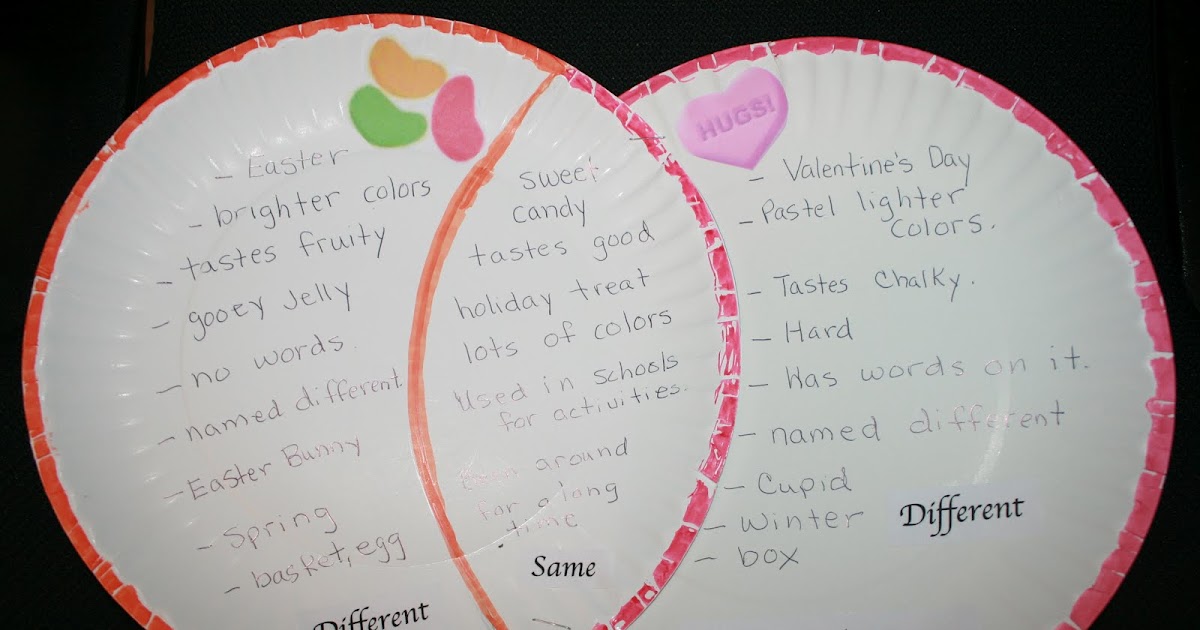 - Easter
- brighter colors
- tastes fruity
- gooey Jelly
- no words.
- named different.
- Easter Bunny
- Spring
- basket, egg
Different
sweet
candy
tastes good
holiday treat
lots of colors
Used in schools
for activities.
Been around
for a long
time
Same
HUGS!
- Valentine's Day
- Pastel lighter
colors.
- Tastes Chalky.
- Hard
- Has words on it.
- named different
- Cupid
- Winter
- box
Different